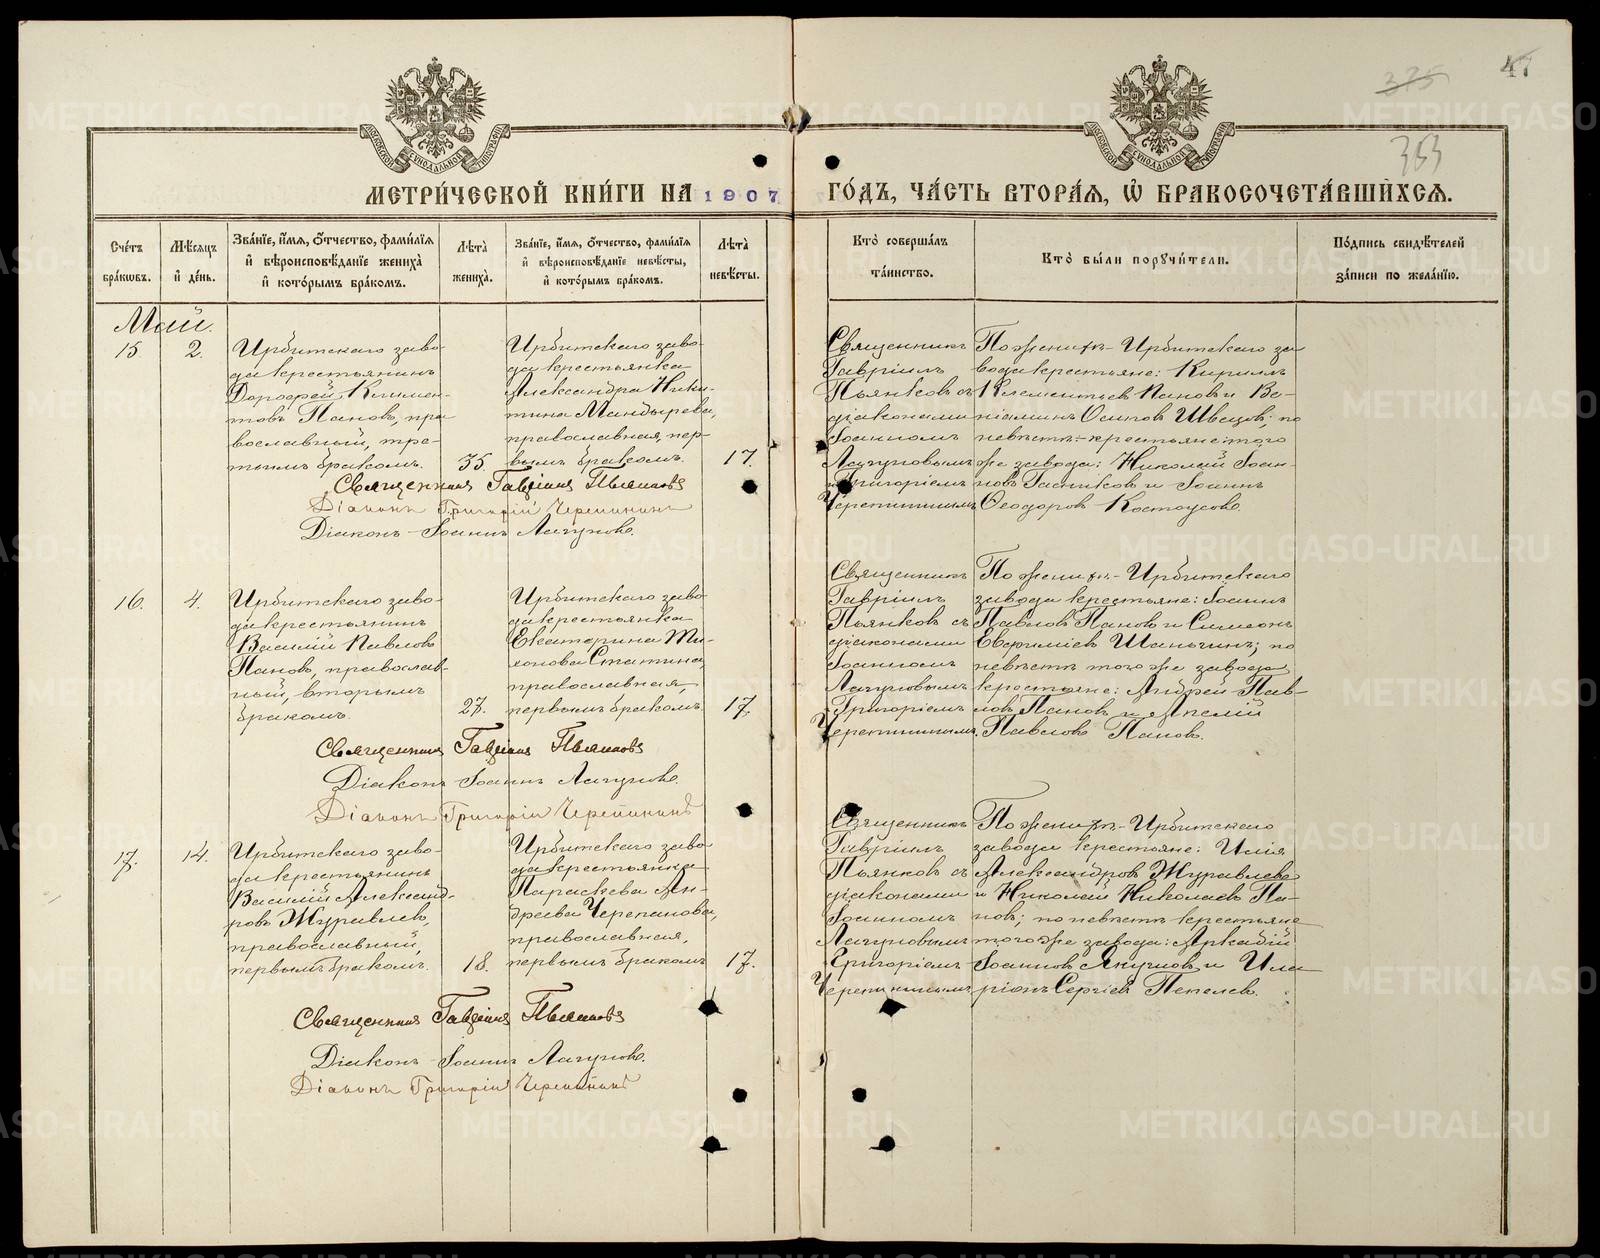 47
375
353
МЕТРИ́ЧЕСКОЙ КНИ́ГИ НА 1907 ГО́ДЪ, ЧА́СТЬ ВТОРА́Я, Ѿ БРАКОСОЧЕТА́ВШИХСЯ.
Сче́тъ бра́кѡвъ.
Мѣ́сяцъ и де́нь.
Зва́нїе, и́мя, ѻ́тчество, фами́лїя и вѣроисповѣ́данїе жениха̀ и кото́рымъ бра́комъ.
Лѣ́та жениха̀.
Зва́нїе, и́мя, ѻ́тчество, фами́лїя и вѣроисповѣ́данїе невѣ́сты, и кото́рымъ бра́комъ.
Лѣ́та невѣ́сты.
Кто̀ соверша́лъ та́инство.
Кто̀ бы́ли порꙋчи́тели.
По́дпись свидѣ́телей за́писи по жела́нїю.
Май.
15.
2.
Ирбитскаго заво-
да крестьянинъ
Дорофей Климен-
товъ Пановъ, пра-
вославный, тре-
тьимъ бракомъ.
35.
Ирбитскаго заво-
да крестьянка
Александра Ники-
тина Мандырева,
православная, пер-
вымъ бракомъ.
17.
Священникъ
Гавріилъ
Пьянковъ съ
діаконами
Іоанномъ
Лагуновымъ
Григоріемъ
Черепининымъ
По женихѣ - Ирбитскаго за
вода крестьяне: Кириллъ
Клементьевъ Пановъ и Ве-
ніаминъ Осиповъ Швецовъ; по
невѣстѣ - крестьяне того
же завода: Николай Іоан-
новъ Гасниковъ и Іоаннъ
Ѳеодоровъ Костоусовъ.
Священникъ Гавріилъ Пьянковъ
Діаконъ Григорій Черепининъ
Діаконъ Іоаннъ Лагуновъ.
16.
4.
Ирбитскаго заво-
да крестьянинъ
Василій Павловъ
Пановъ, православ-
ный, вторымъ
бракомъ.
27.
Ирбитскаго заво
да крестьянка
Екатерина Ти-
хонова Статина
православная,
первымъ бракомъ.
17.
Священникъ
Гавріилъ
Пьянковъ съ
діаконами
Іоанномъ
Лагуновымъ
Григоріемъ
Черепининымъ.
По женихѣ - Ирбитскаго
завода крестьяне: Іоаннъ
Павловъ Пановъ и Симеонъ
Евфиміевъ Шаньгинъ; по
невѣстѣ того же завода
крестьяне: Андрей Пав-
ловъ Пановъ и
Павловъ Пановъ.
Священникъ Гавріилъ Пьянковъ
Діаконъ Іоаннъ Лагуновъ.
Діаконъ Григорій Черепининъ
17.
14.
Ирбитскаго заво-
да крестьянинъ
Василій Александ-
ровъ Журавлевъ,
православный,
первымъ бракомъ.
18.
Ирбитскаго заво
да крестьянка
Параскева Ан-
дреева Черепанова,
православная,
первымъ бракомъ
17.
Священникъ
Гавріилъ
Пьянковъ съ
діаконами
Іоанномъ
Лагуновымъ
Григоріемъ
Черепининымъ
По женихѣ - Ирбитскаго
завода крестьяне: Илія
Александровъ Журавлевъ
и Николай Николаевъ Па-
новъ; по невѣстѣ крестьяне
того же завода: Аркадій
Іоанновъ Якуниовъ и Ила-
ріонъ Сергіевъ Пепелевъ.
Священникъ Гавріилъ Пьянковъ
Діаконъ Іоаннъ Лагуновъ.
Діаконъ Григорій Черепининъ